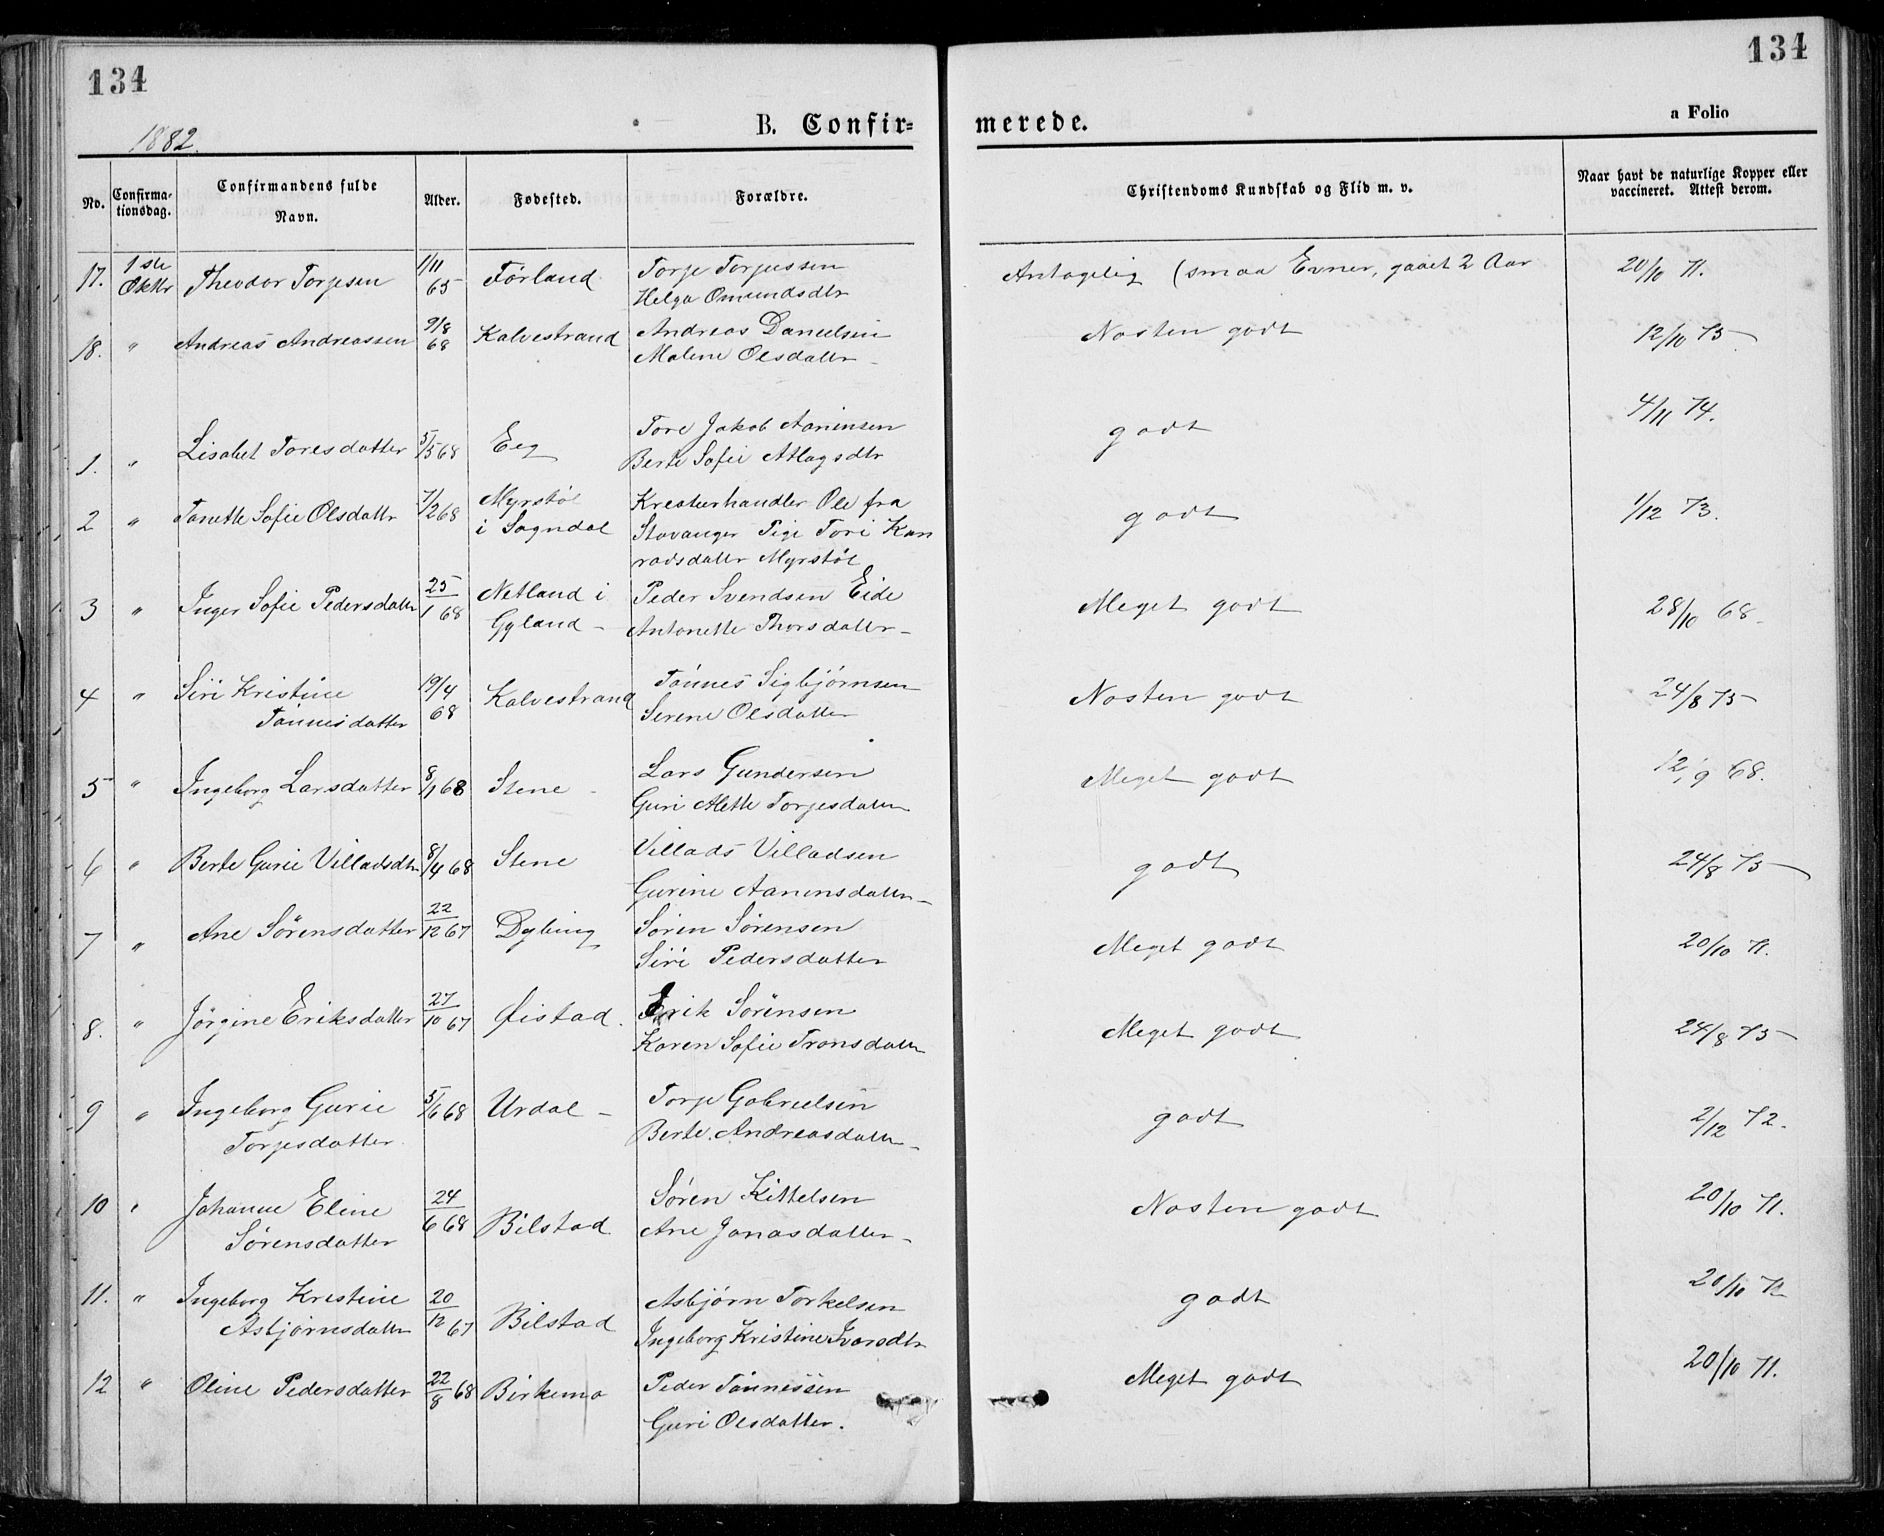 134
134
1882.
B. Confir=
merede.
a Folio
No.
Confirma-
tionsdag.
Confirmandens fulde
Navn.
Alder.
Fødested.
Forældre.
Christendoms Kundskab og Flid m. v.
Naar havt de naturlige Kopper eller
vaccineret. Attest derom.
17. 1ste Oktbr Theodor Torjesen 1/11 65 Førland Torje Torjussen
Helga Omundsdtr
Antagelig (smaa Evner, gaaet 2 Aar 20/10 71.
18. " Andreas Andreassen 9/8 68 Kalvestrand Andreas Danielsen
Malene Olsdattr
Næsten godt 12/10 75
1. " Lisabet Toresdatter 5/5 68 Eeg Tore Jakob Aanensen
Berte Sofie Atlagsdtr
godt 4/11 74.
2 " Tanette Sofie Olsdattr 7/2 68 Myrstøl
i Sogndal
Kreaturhandler Ole fra
Stavanger Pige Tori Kon
radsdattr Myrstøl
godt 1/12 73.
3 " Inger Sofie Pedersdattr 25/1 68 Netland i
Gyland
Peder Svendsen Eide
Antonette Thorsdatter
Meget godt 28/10 68
4 " Siri Kristine
Tønnesdatter
19/4 68 Kalvestrand Tønnes Sigbjørnsen
Serene Olsdatter
Næsten godt 24/8 75
5 " Ingeborg Larsdatter 8/1 68 Stene Lars Gundersen
Guri Alette Torjesdatter
Meget godt 12/9 68.
6 " Berte Gurie Villadsdtr 8/4 68 Stene Villads Villadsen
Gurine Aanensdatter
godt 24/8 75
7 " Ane Sørensdatter 22/12 67 Dybing Søren Sørensen
Siri Pedersdatter
Meget godt 20/10 71.
8. " Jørgine Eriksdatter 27/10 67 Øistad. Erik Sørensen
Karen Sofie Tronsdatter
Meget godt 24/8 75
9 " Ingeborg Gurie
Torjesdatter
5/6 68 Urdal Torje Gabrielsen
Berte Andreasdatter
godt 2/12 72.
10 " Johanne Eline
Sørensdatter
24/6 68 Bilstad Søren Kittelsen
Ane Jonasdatter
Næsten godt 20/10 71.
11. " Ingeborg Kristine
Asbjørnsdatter
20/12 67 Bilstad Asbjørn Torkelsen
Ingeborg Kristine Ivarsdtr
godt 20/10
12 " Oline Pedersdatter 22/8 68 Birkemo Peder Tønnessen
Guri Olsdatter.
Meget godt 20/10 71.